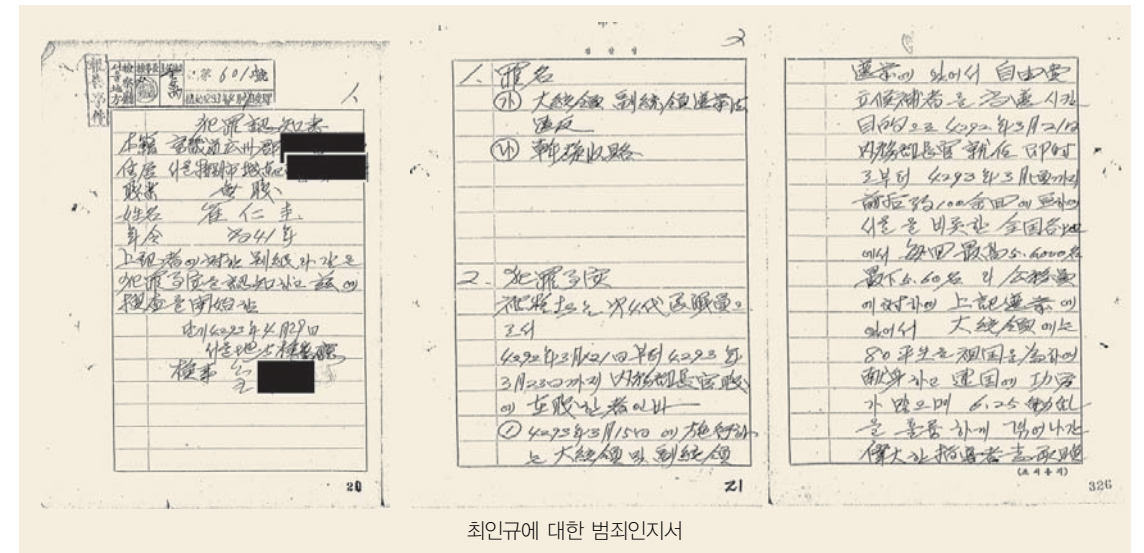 第 601 號
1
犯罪認知書
本籍 京畿道広州郡
住居 서울特別市
職業 無職
姓名 崔仁圭
年令 当41年
上記者에 対한 別紙와 같은
犯罪事実을 認知하고 玆에
捜査를 開始함
단기 4293年 4月 29日
서울地方検察庁
検事
20
2
1. 罪名
㉮ 大統領 副統領選挙法
違反
㉯ 斡旋收賂
2. 犯罪事実
被疑者는 第4代 民議員으
로서
4292年 3月 21日부터 4293年
3月 23日까지 内務部長官職
에 在職한 者인바
① 4293年 3月 15日에 施行하
는 大統領 및 副統領
21
選挙에 있어서 自由党
立候補者를 当選시킬
目的으로 4292年 3月 21日
内務部長官 就任 即時
로부터 4293年 3月 까지
前后 約 100余回에 亘하여
서울을 비롯한 全国各地
에서 毎回 最高 5.6000名
最下 5.60名의 公務員
에 対하여 上記選挙에
있어서 大統領에는
80平生을 祖国을 為하여
献身하고 建国에 功労
가 많으며 6.25動乱
을 훌륭하게 겪어나간
偉大한 指導者 李承晩
326
최인규에 대한 범죄인지서